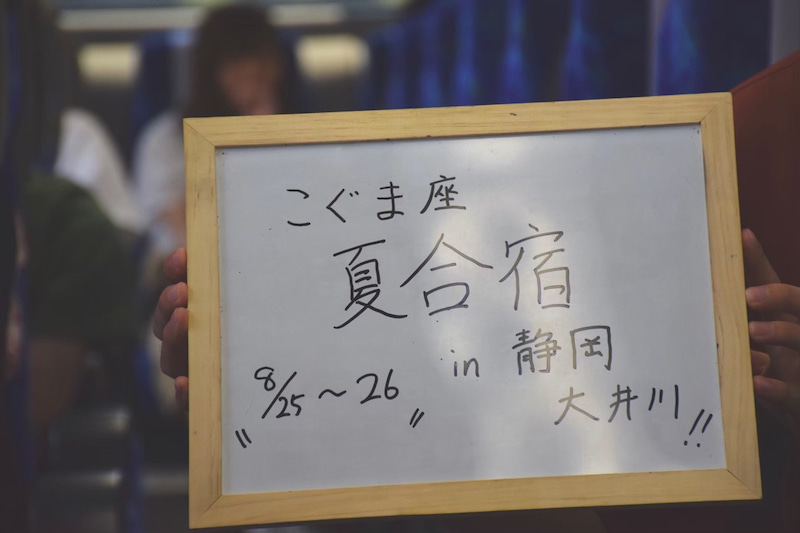 こぐま座
夏合宿
in 静岡
大井川!!
"8/25〜26"